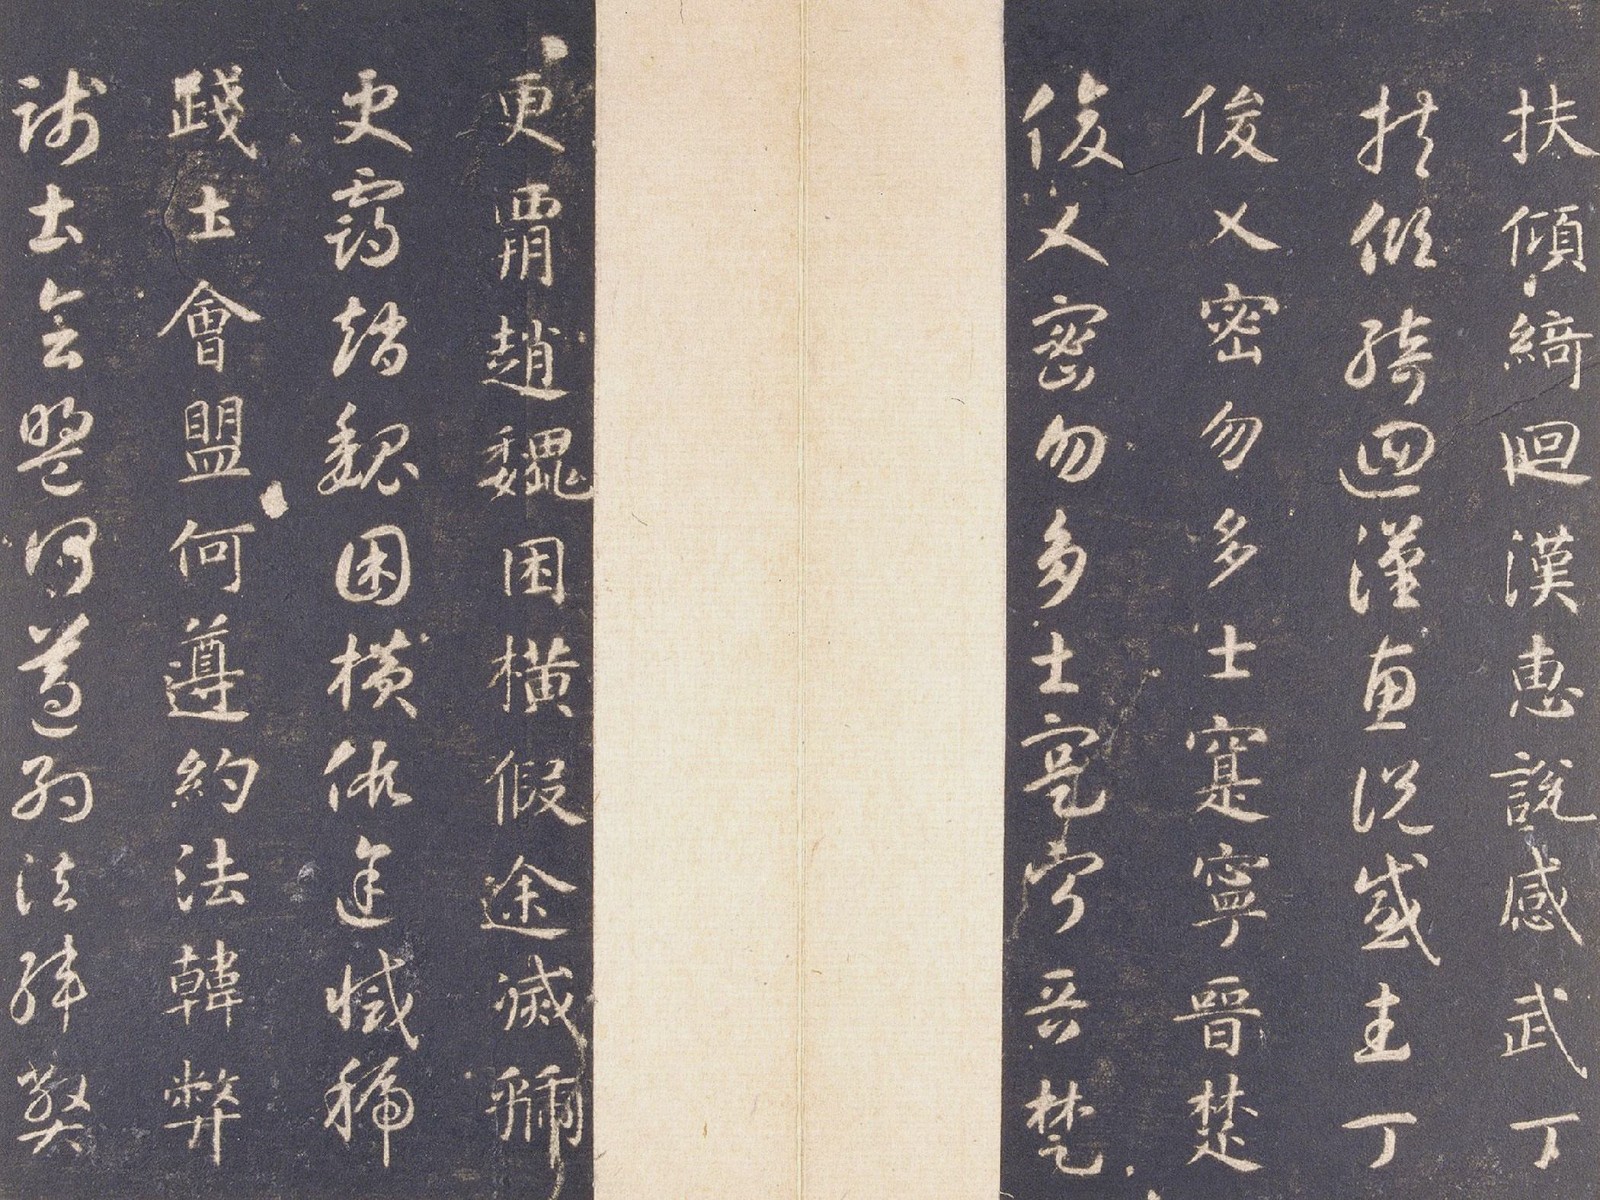 扶傾綺迴漢惠說感武丁
扶傾綺迴漢惠說感武丁
俊乂密勿多士寔寧晉楚
俊乂密勿多士寔寧晉楚
更霸趙魏困橫假途滅虢
更霸趙魏困橫假途滅虢
踐土會盟何遵約法韓弊
踐土會盟何遵約法韓弊